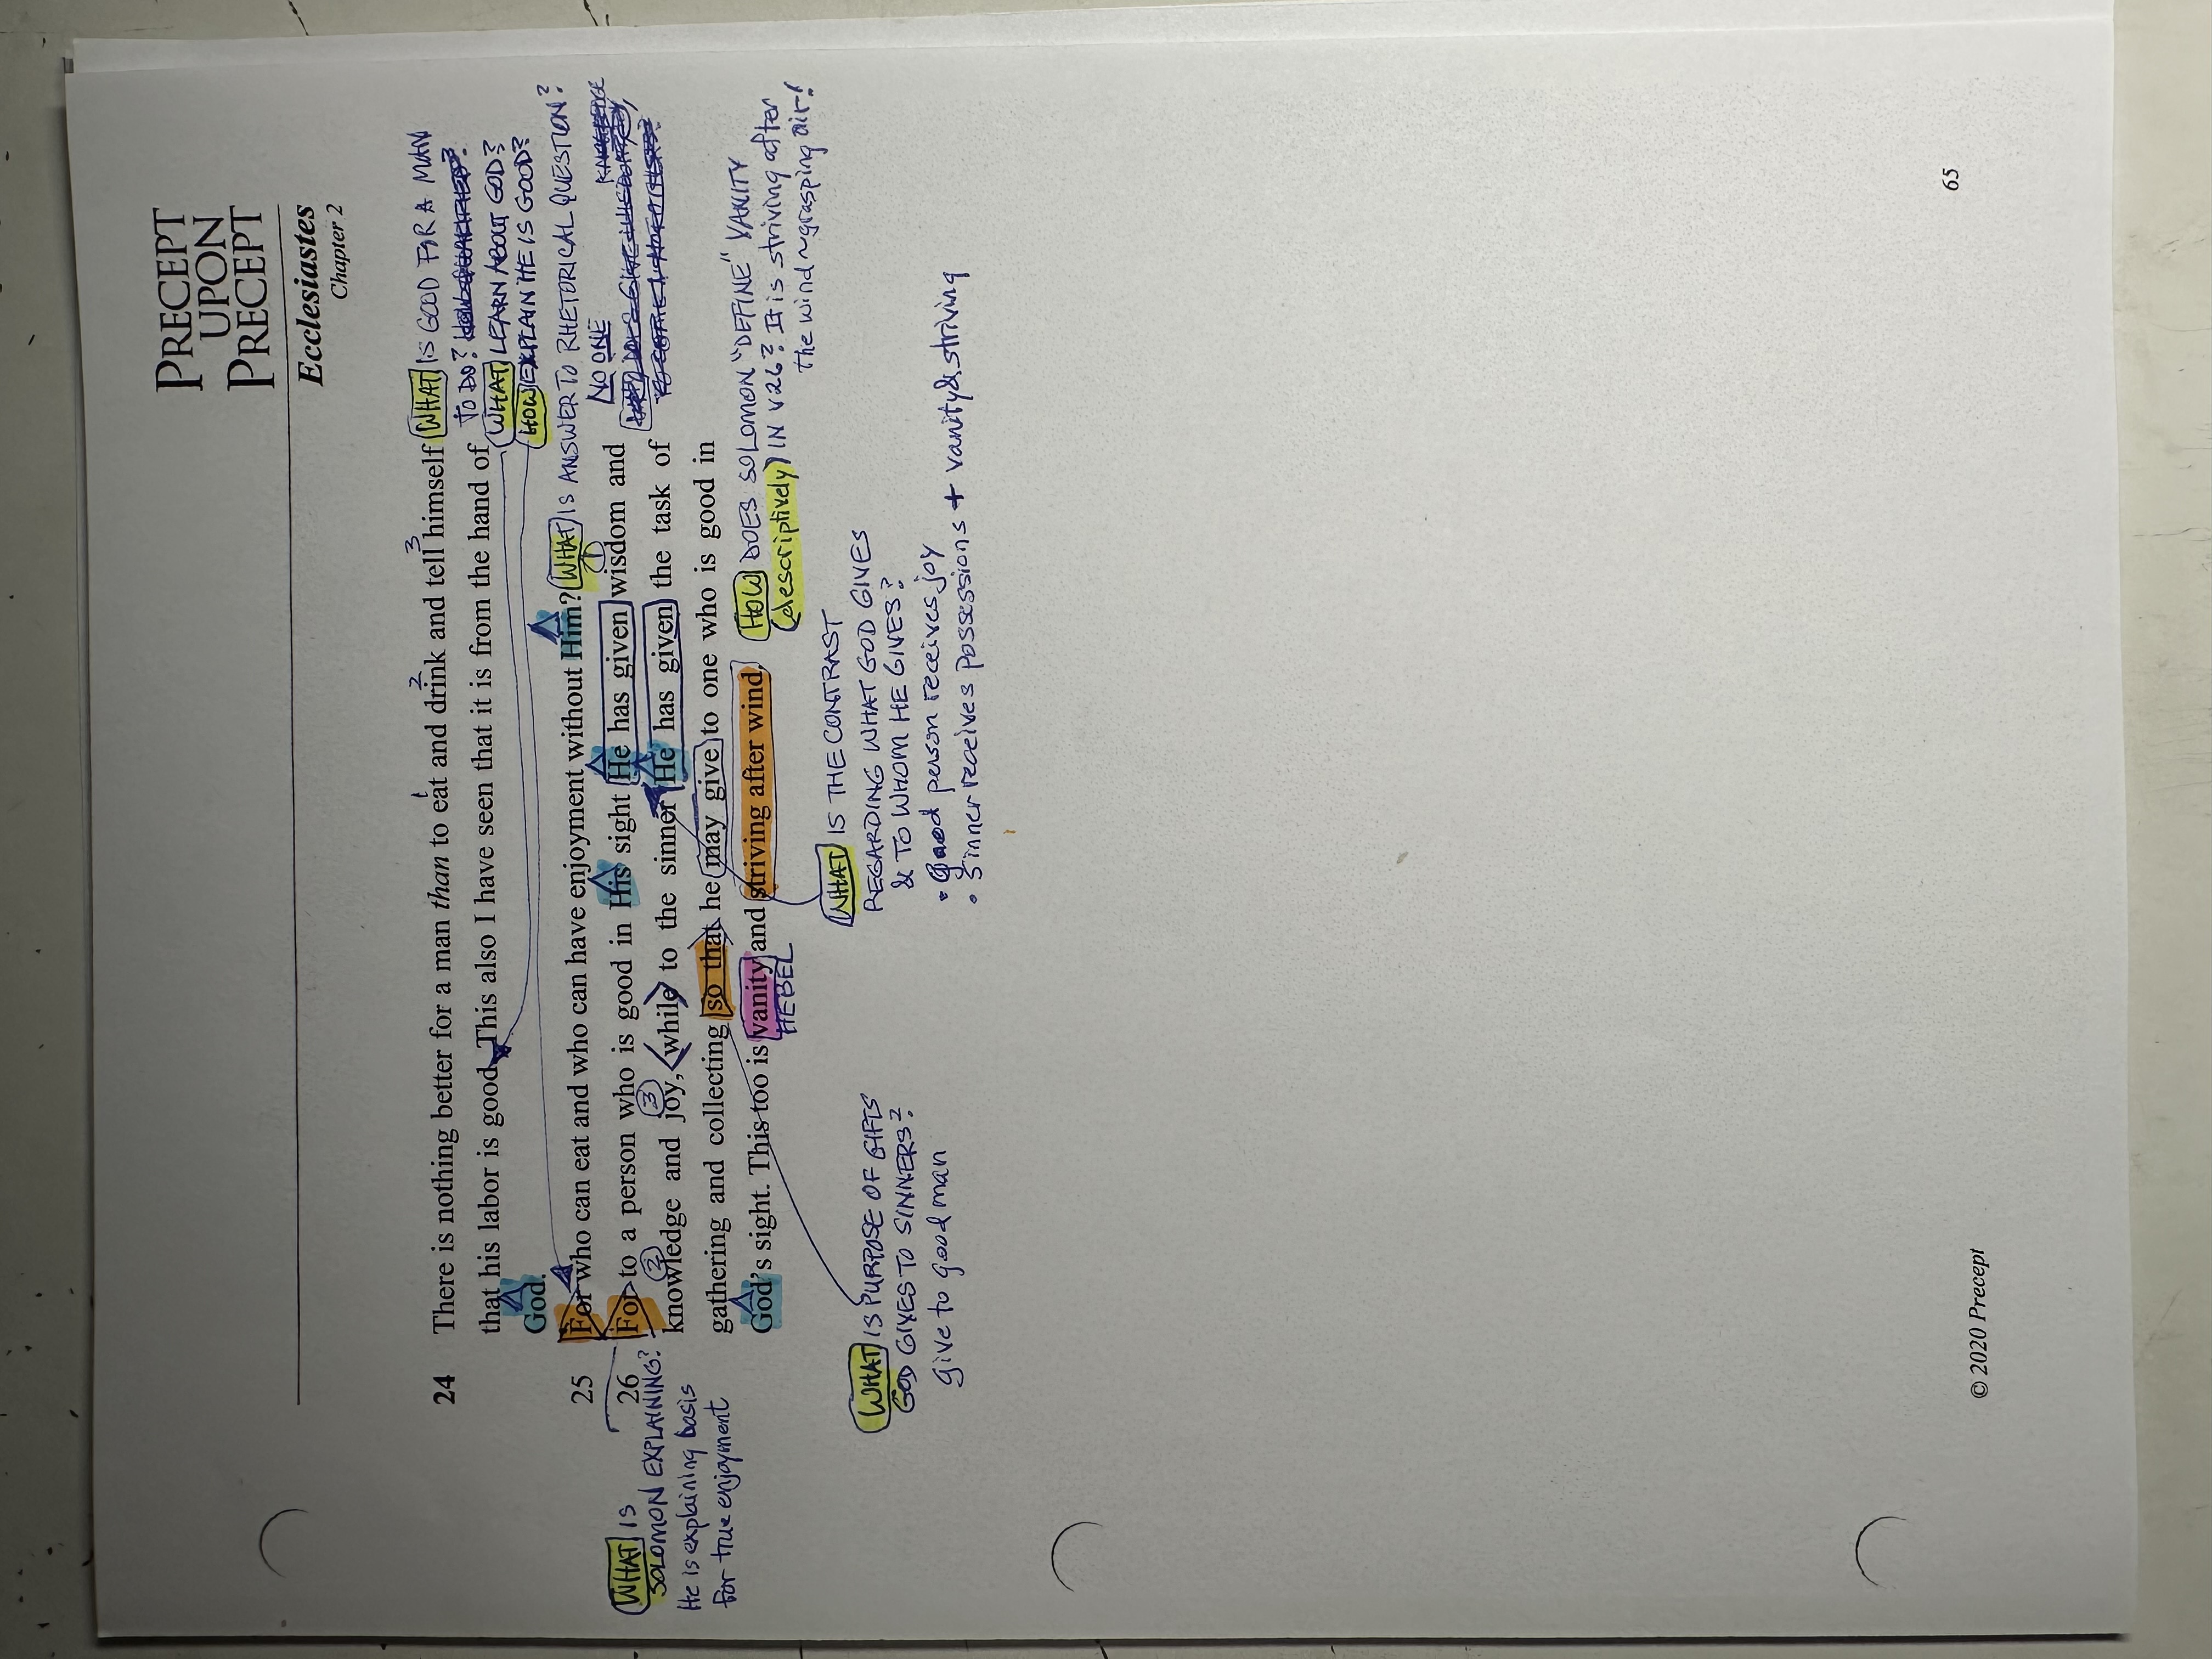 PRECEPT
UPON
PRECEPT
Ecclesiastes
Chapter 2
24 There is nothing better for a man than to eat and drink and tell himself
that his labor is good. This also I have seen that it is from the hand of
God.
25 For who can eat and who can have enjoyment without Him?
26 For to a person who is good in His sight He has given wisdom and
knowledge and joy, while to the sinner He has given the task of
gathering and collecting so that he may give to one who is good in
God's sight. This too is vanity and striving after wind.
1 2 3
WHAT IS GOOD FOR A MAN
TO DO?
WHAT LEARN ABOUT GOD?
HOW EXPLAIN HE IS GOOD?
WHAT IS ANSWER TO RHETORICAL QUESTION?
NO ONE
1
2
3
HEBEL
HOW DOES SOLOMON "DEFINE" VANITY
(descriptively) IN V26? It is striving after
the wind ~ grasping air!
WHAT IS
SOLOMON EXPLAINING?
He is explaining basis
for true enjoyment
WHAT IS THE CONTRAST
REGARDING WHAT GOD GIVES
& TO WHOM HE GIVES?
• Good person receives joy
• Sinner receives possessions + vanity & striving
WHAT IS PURPOSE OF GIFTS
GOD GIVES TO SINNERS?
Give to good man
© 2020 Precept
65